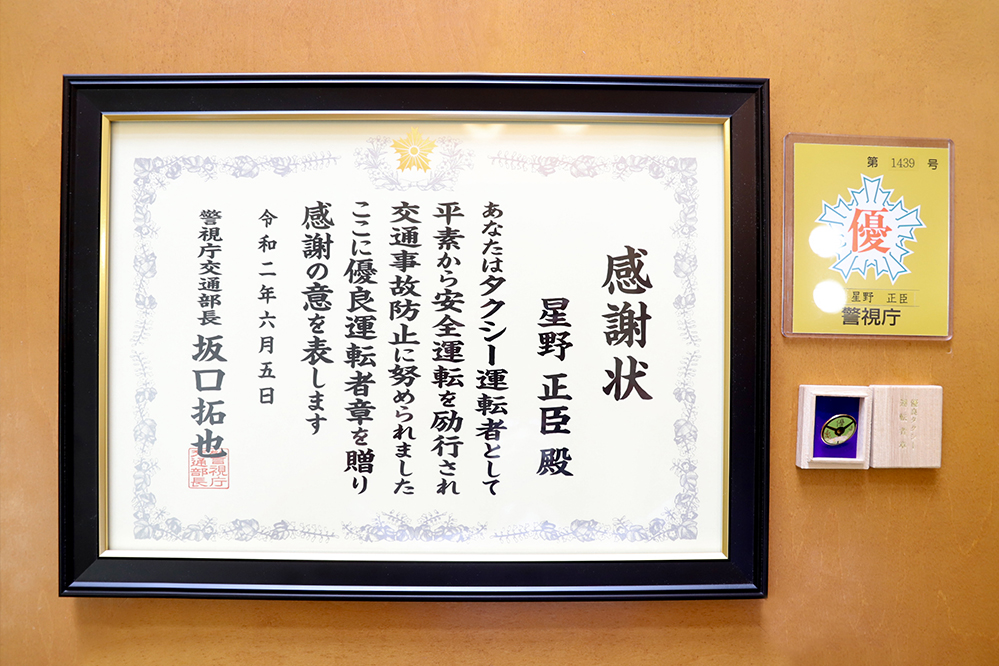 感謝状
星野正臣殿
あなたはタクシー運転者として
平素から安全運転を励行され
交通事故防止に努められました
ここに優良運転者章を贈り
感謝の意を表します
令和二年六月五日
警視庁交通部長 坂口拓也
警視庁
交通部長
第 1439 号
優
星野 正臣
警視庁